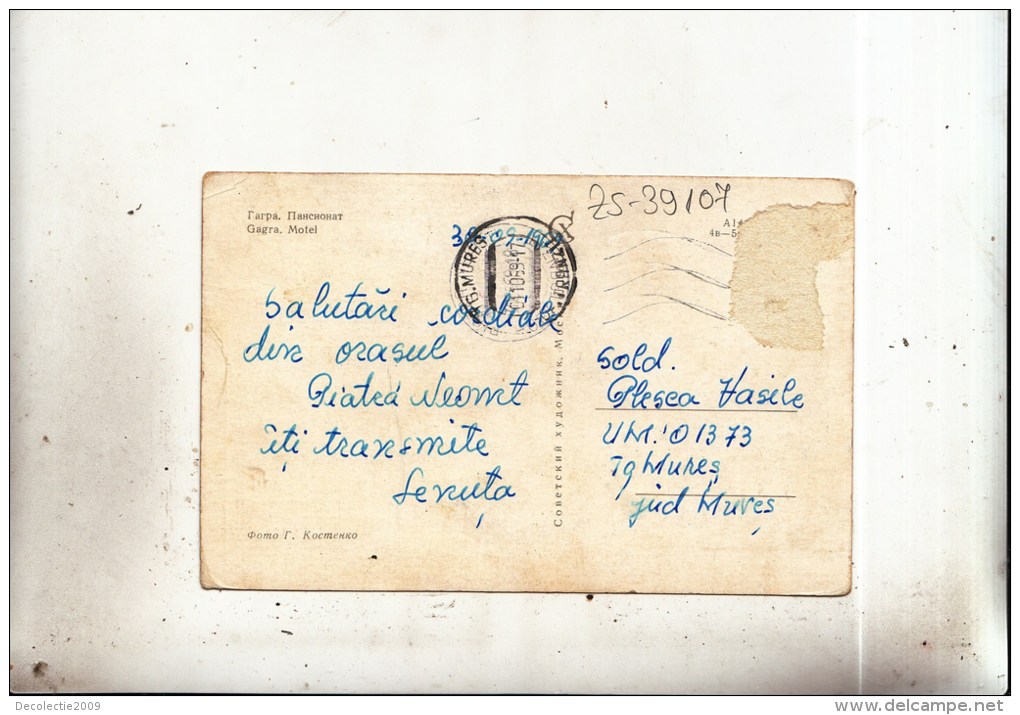 ZS-39/07
Гагра. Пансионат
Gagra. Motel
TG.MURES
011069-17
salutări cordiale
din orasul
Piatra Neamt
îți transmite
Lenuța
Sold.
Plesca Vasile
UM: 01373
Tg Mureș
jud Mureș
Советский художник. Мос
Фото Г. Костенко
Decolectie2009
www.delcampe.net